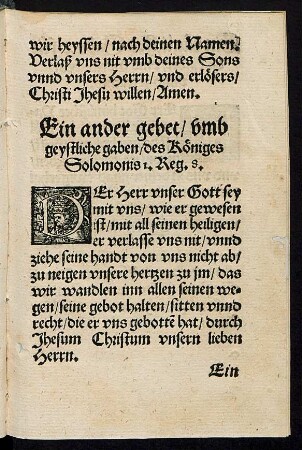 wir heyssen / nach deinen Namen.
Verlaß vns nit vmb deines Sons
vnnd vnsers Herrn / vnd erlösers /
Christi Jhesu willen / Amen.
Ein ander gebet / vmb
geystliche gaben / des Königes
Solomonis 1. Reg. 8.
DEr Herr vnser Gott sey
mit vns / wie er gewesen
ist / mit all seinen heiligen /
er verlasse vns nit / vnnd
ziehe seine handt von vns nicht ab /
zu neigen vnsere hertzen zu jm / das
wir wandlen inn allen seinen we-
gen / seine gebot halten / sitten vnnd
recht / die er vns gebottē hat / durch
Jhesum Christum vnsern lieben
Herrn.
Ein